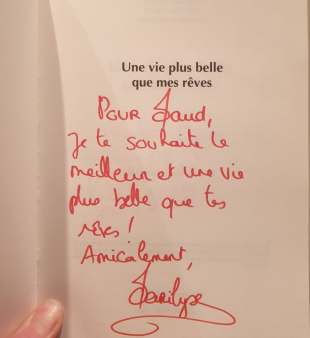 Une vie plus belle
que mes rêves
Pour
Je te souhaite le
meilleur et une vie
plus belle que tes
rêves !
Amicalement,
Marilyse